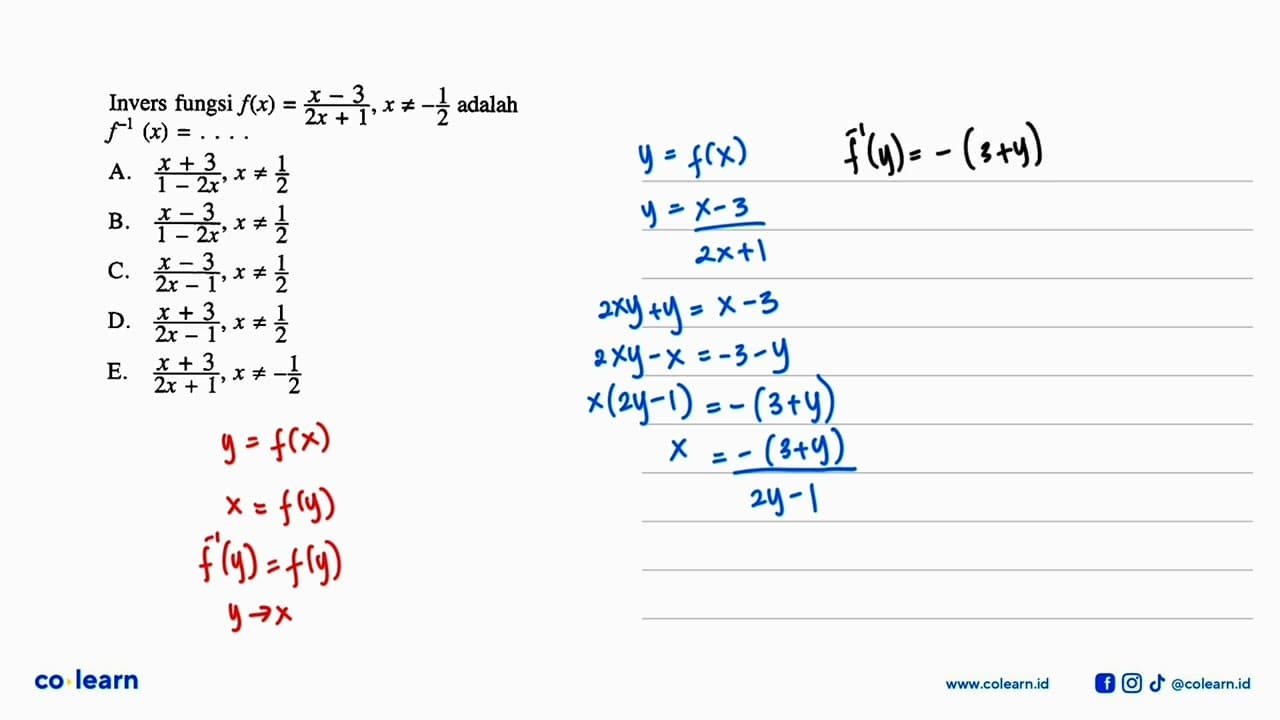 Invers fungsi f(x) = \frac{x - 3}{2x + 1}, x ≠ -\frac{1}{2} adalah
f^{-1} (x) = . . . .
A. \frac{x + 3}{1 - 2x}, x ≠ \frac{1}{2}
B. \frac{x - 3}{1 - 2x}, x ≠ \frac{1}{2}
C. \frac{x - 3}{2x - 1}, x ≠ \frac{1}{2}
D. \frac{x + 3}{2x - 1}, x ≠ \frac{1}{2}
E. \frac{x + 3}{2x + 1}, x ≠ -\frac{1}{2}
y = f(x)
x = f(y)
f^{-1}(y) = f(y)
y → x
y = f(x)
y = \frac{x - 3}{2x + 1}
2xy + y = x - 3
2xy - x = -3 - y
x(2y - 1) = -(3 + y)
x = \frac{-(3 + y)}{2y - 1}
f^{-1}(y) = -(3 + y)
co learn
www.colearn.id
@colearn.id